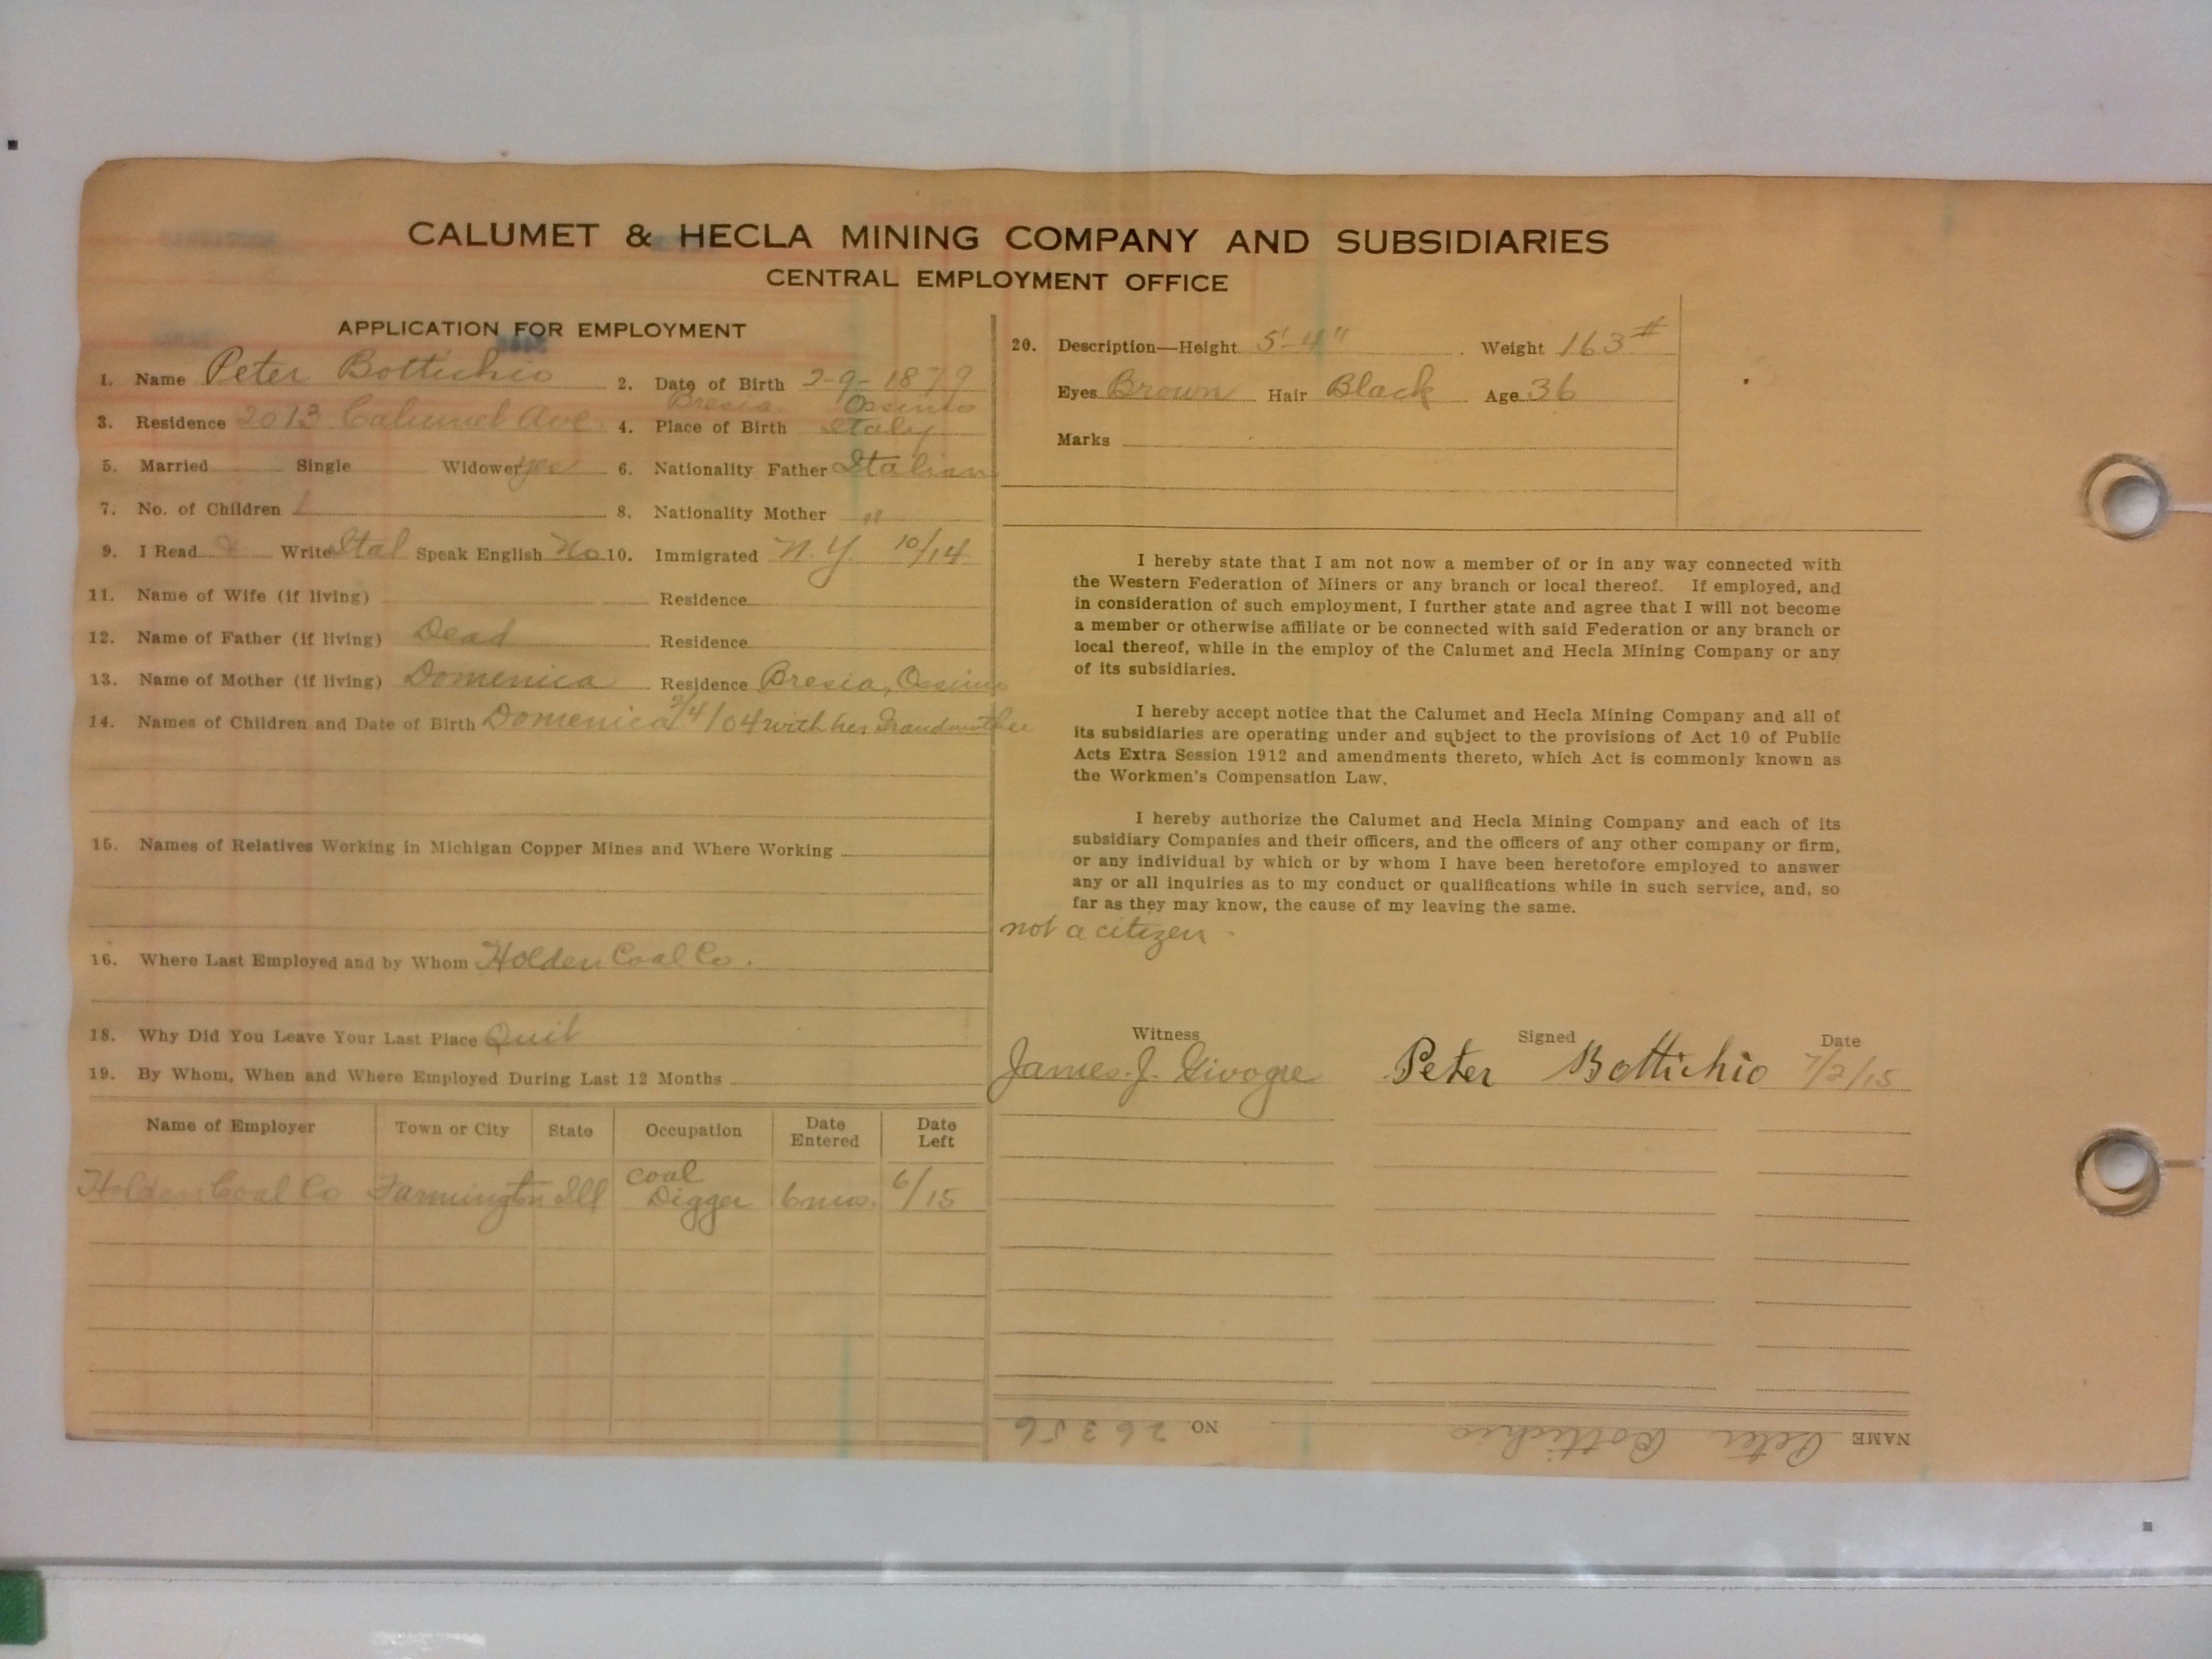 CALUMET & HECLA MINING COMPANY AND SUBSIDIARIES
CENTRAL EMPLOYMENT OFFICE
APPLICATION FOR EMPLOYMENT
1. Name Peter Bottichio 2. Date of Birth 2-9-1879
3. Residence 2013 Calumet Ave. 4. Place of Birth Bresia Ossimo Italy
5. Married Single Widower yes 6. Nationality Father Italian
7. No. of Children 1 8. Nationality Mother "
9. I Read & Write Ital Speak English No 10. Immigrated N.Y. 10/14
11. Name of Wife (if living) Residence
12. Name of Father (if living) Dead Residence
13. Name of Mother (if living) Domenica Residence Bresia, Ossimo
14. Names of Children and Date of Birth Domenica /4/04 with her Grandmother
15. Names of Relatives Working in Michigan Copper Mines and Where Working
16. Where Last Employed and by Whom Holden Coal Co.
18. Why Did You Leave Your Last Place Quit
19. By Whom, When and Where Employed During Last 12 Months
Name of Employer Town or City State Occupation Date Entered Date Left
Holden Coal Co Farmington Ill Coal Digger 6 mos. 6/15
20. Description—Height 5'-4" Weight 163#
Eyes Brown Hair Black Age 36
Marks
I hereby state that I am not now a member of or in any way connected with
the Western Federation of Miners or any branch or local thereof. If employed, and
in consideration of such employment, I further state and agree that I will not become
a member or otherwise affiliate or be connected with said Federation or any branch or
local thereof, while in the employ of the Calumet and Hecla Mining Company or any
of its subsidiaries.
I hereby accept notice that the Calumet and Hecla Mining Company and all of
its subsidiaries are operating under and subject to the provisions of Act 10 of Public
Acts Extra Session 1912 and amendments thereto, which Act is commonly known as
the Workmen's Compensation Law.
I hereby authorize the Calumet and Hecla Mining Company and each of its
subsidiary Companies and their officers, and the officers of any other company or firm,
or any individual by which or by whom I have been heretofore employed to answer
any or all inquiries as to my conduct or qualifications while in such service, and, so
far as they may know, the cause of my leaving the same.
not a citizen
Witness Signed Date
James. J. Peter Bottichio 7/2/15
NAME Peter Bottichio NO 26356